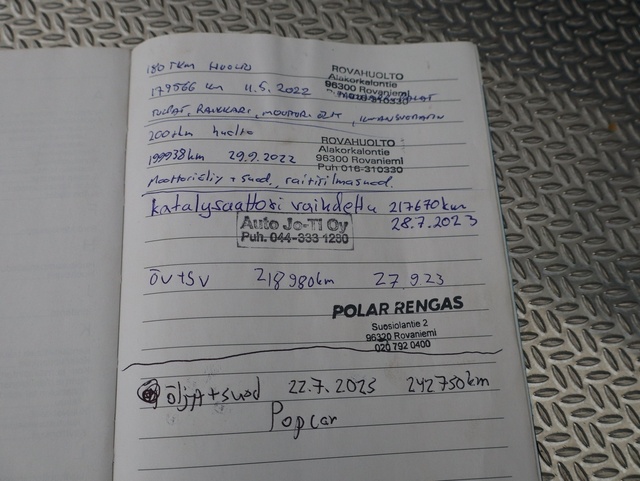 180 TKM HUOLTO
ROVAHUOLTO
Alakorkalontie
96300 Rovaniemi
179566 km 11.5.2022
TULPAT, RAIKKARI, MOOTTORI ÖLJY, ILMANSUODATIN
200tkm huolto
ROVAHUOLTO
Alakorkalontie
96300 Rovaniemi
Puh 016-310330
199938km 29.9.2022
Moottoriöljy + suod, raitisilmasuod.
Katalysaattori vaihdettu 217670km
28.7.2023
Auto Jo-Ti Oy
Puh. 044-333 1280
ÖV+SV 218980km 27.9.23
POLAR RENGAS
Suosiolantie 2
96320 Rovaniemi
020 792 0400
ÖljA+suod 22.7.2025 242750km
Popcar